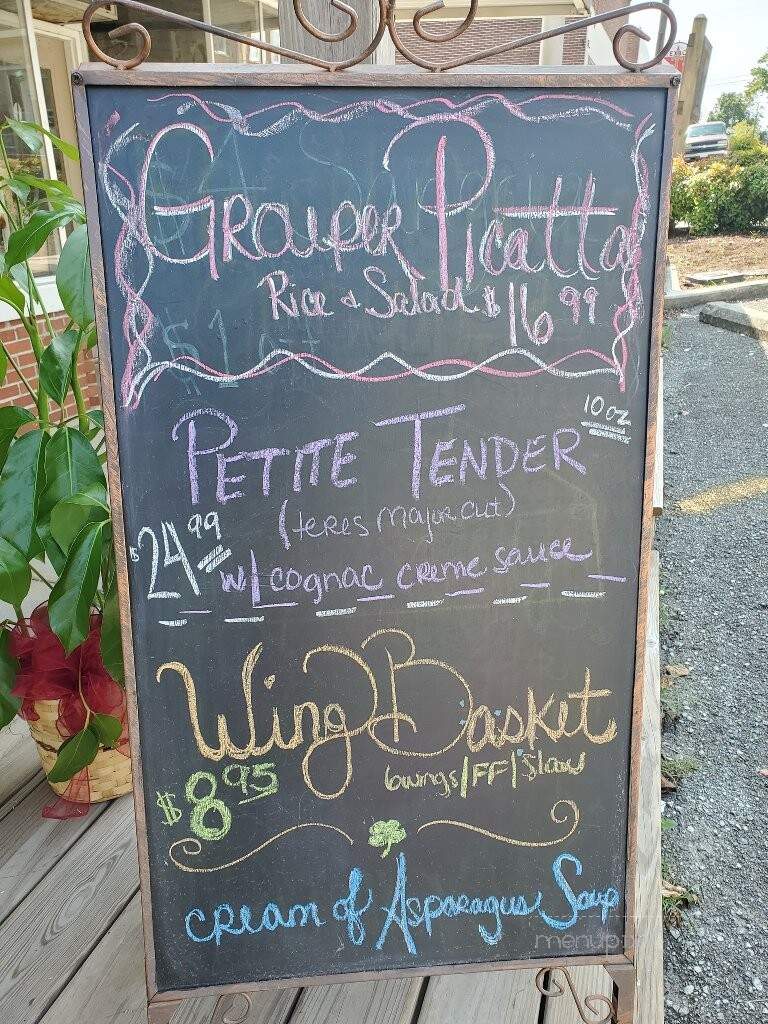 Grouper Picatta
Rice & Salad $16.99
10oz
Petite Tender
(teres major cut)
$24.99
w/ cognac creme sauce
Wing Basket
$8.95
6wings/FF/Slaw
cream of Asparagus Soup